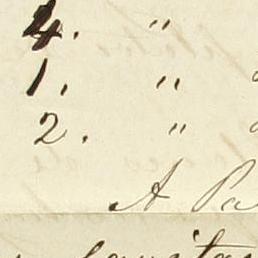 4. "
1. "
2. "
A Pa